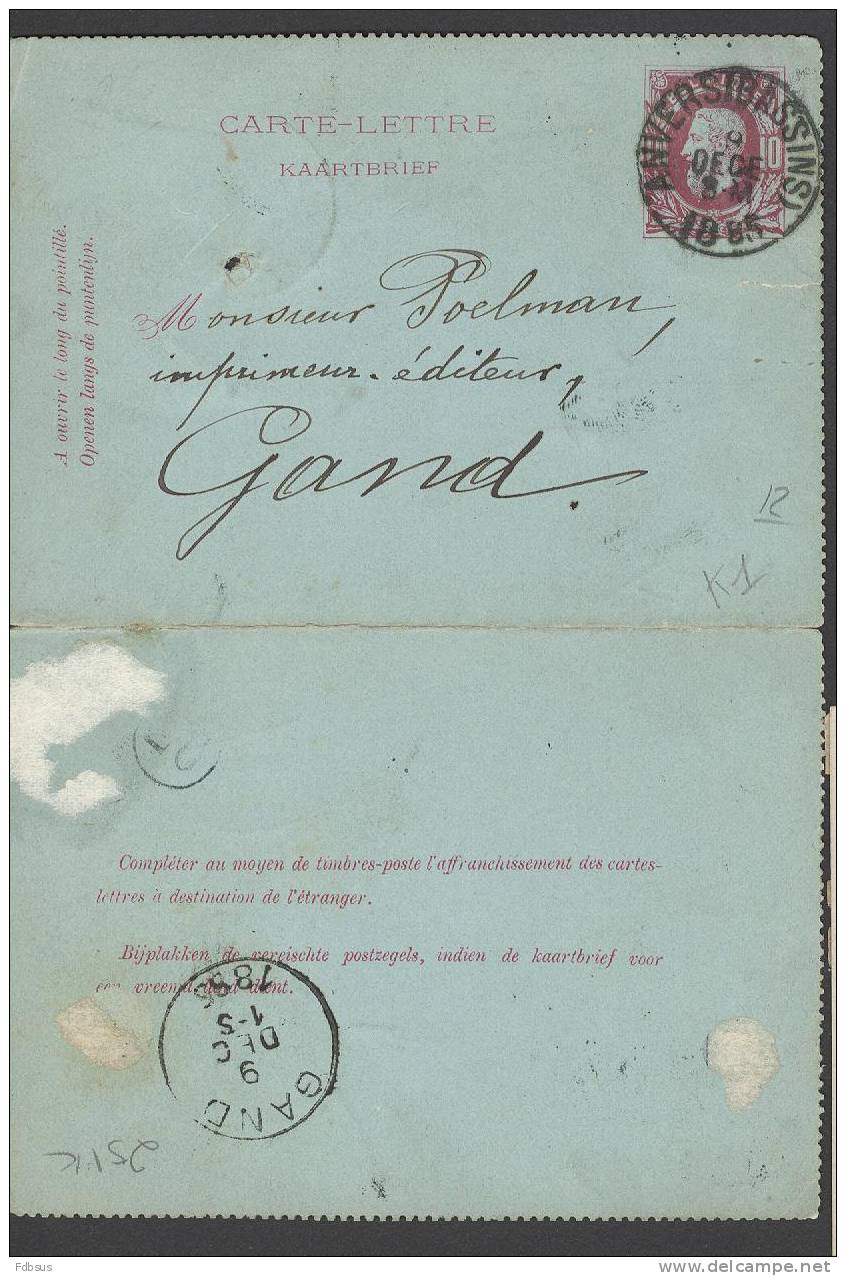 CARTE-LETTRE
KAARTBRIEF
ANVERS (BASSINS)
9
DECE
1885
10
A ouvrir le long du pointillé.
Openen langs de puntenlijn.
Monsieur Poelman,
imprimeur-éditeur,
Gand.
12
K1
Compléter au moyen de timbres-poste l'affranchissement des cartes-
lettres à destination de l'étranger.
Bijplakken de vereischte postzegels, indien de kaartbrief voor
een vreemd land dient.
GAND
9
DEC
1-S
1885
Fdbsus
www.delcampe.net